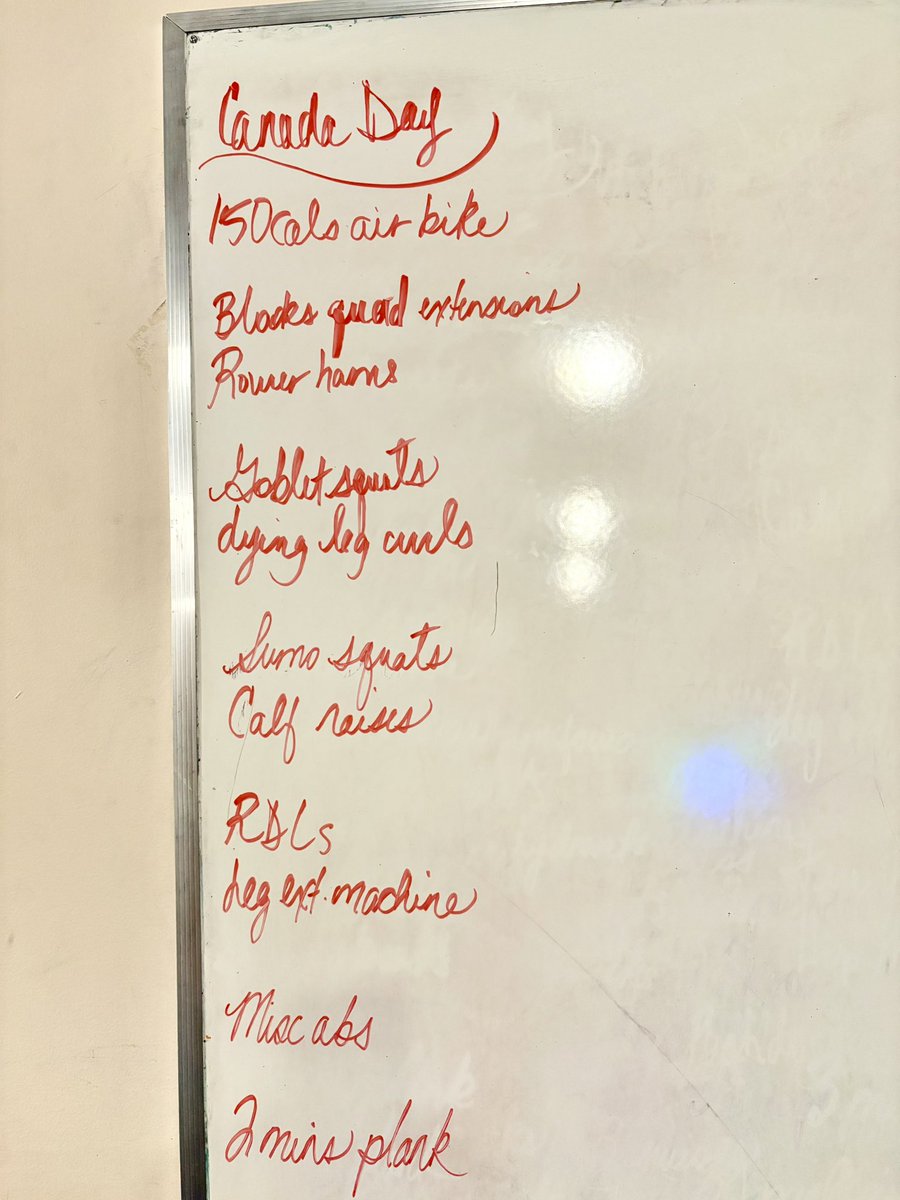 Canada Day
150cals air bike
Blocks quad extensions
Rower hams
Goblet squats
dying leg curls
Sumo squats
Calf raises
RDLs
Leg ext. machine
Misc abs
2 mins plank